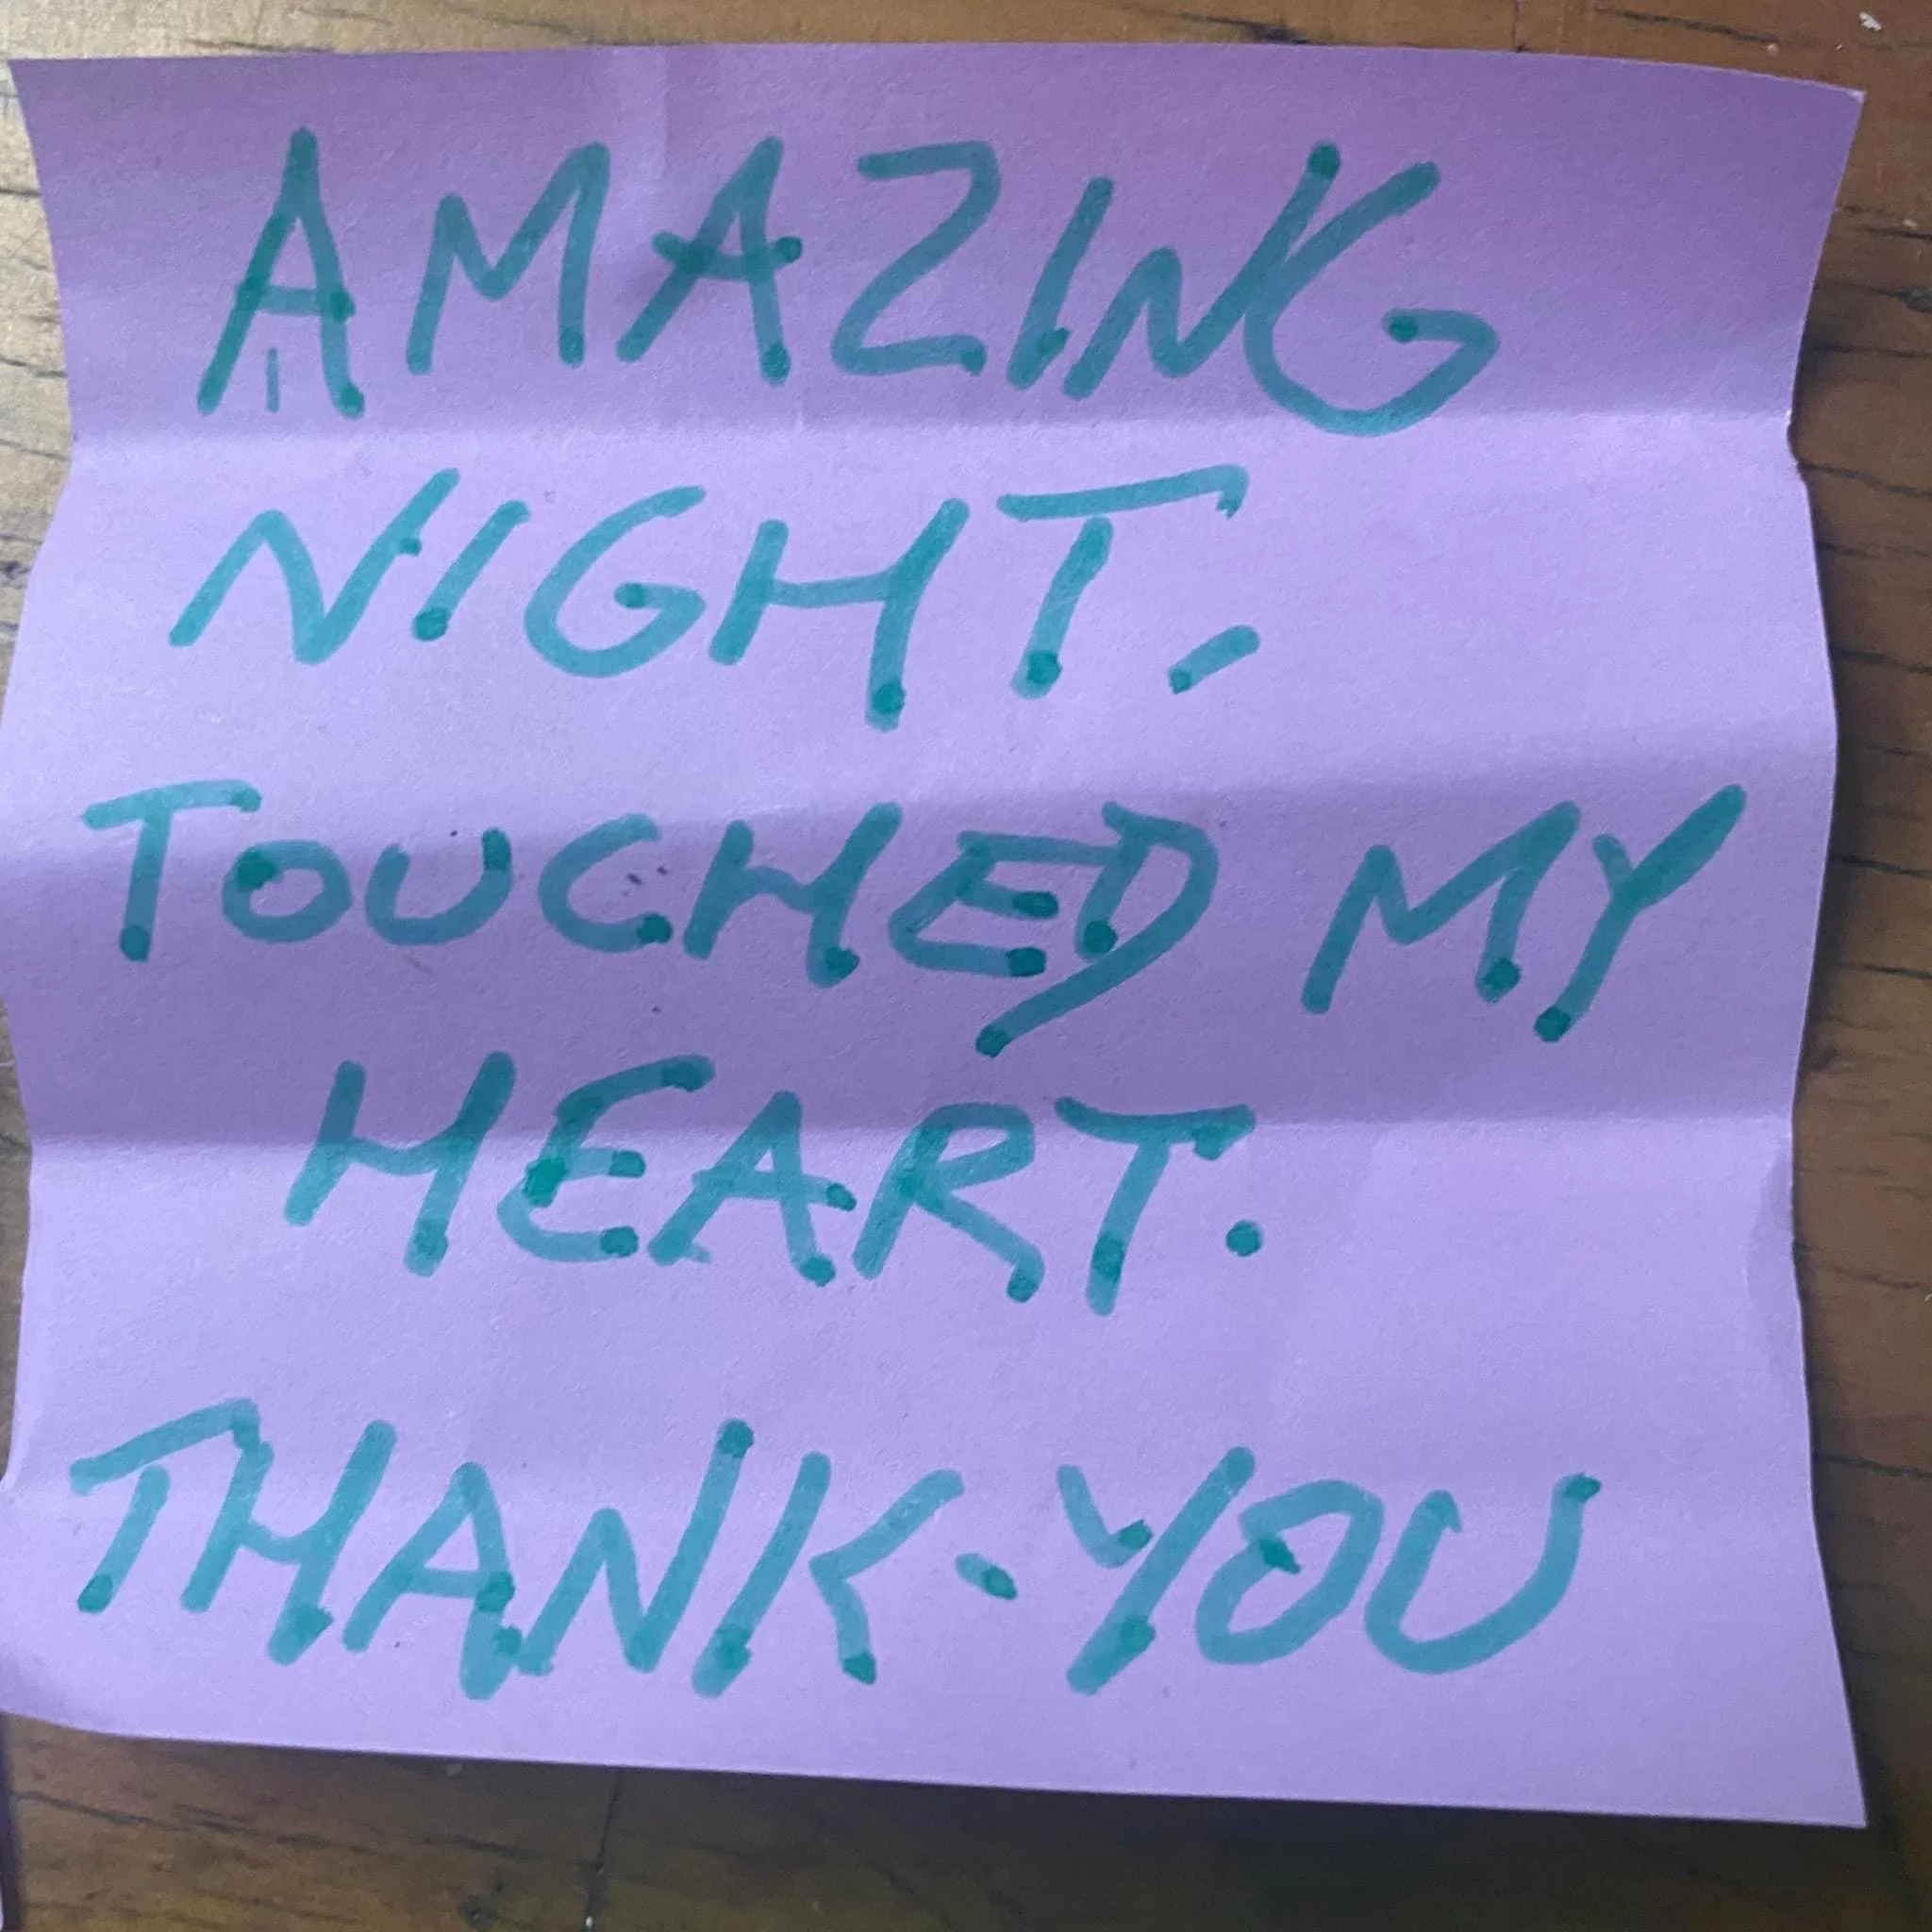 AMAZING
NIGHT.
TOUCHED MY
HEART.
THANK-YOU